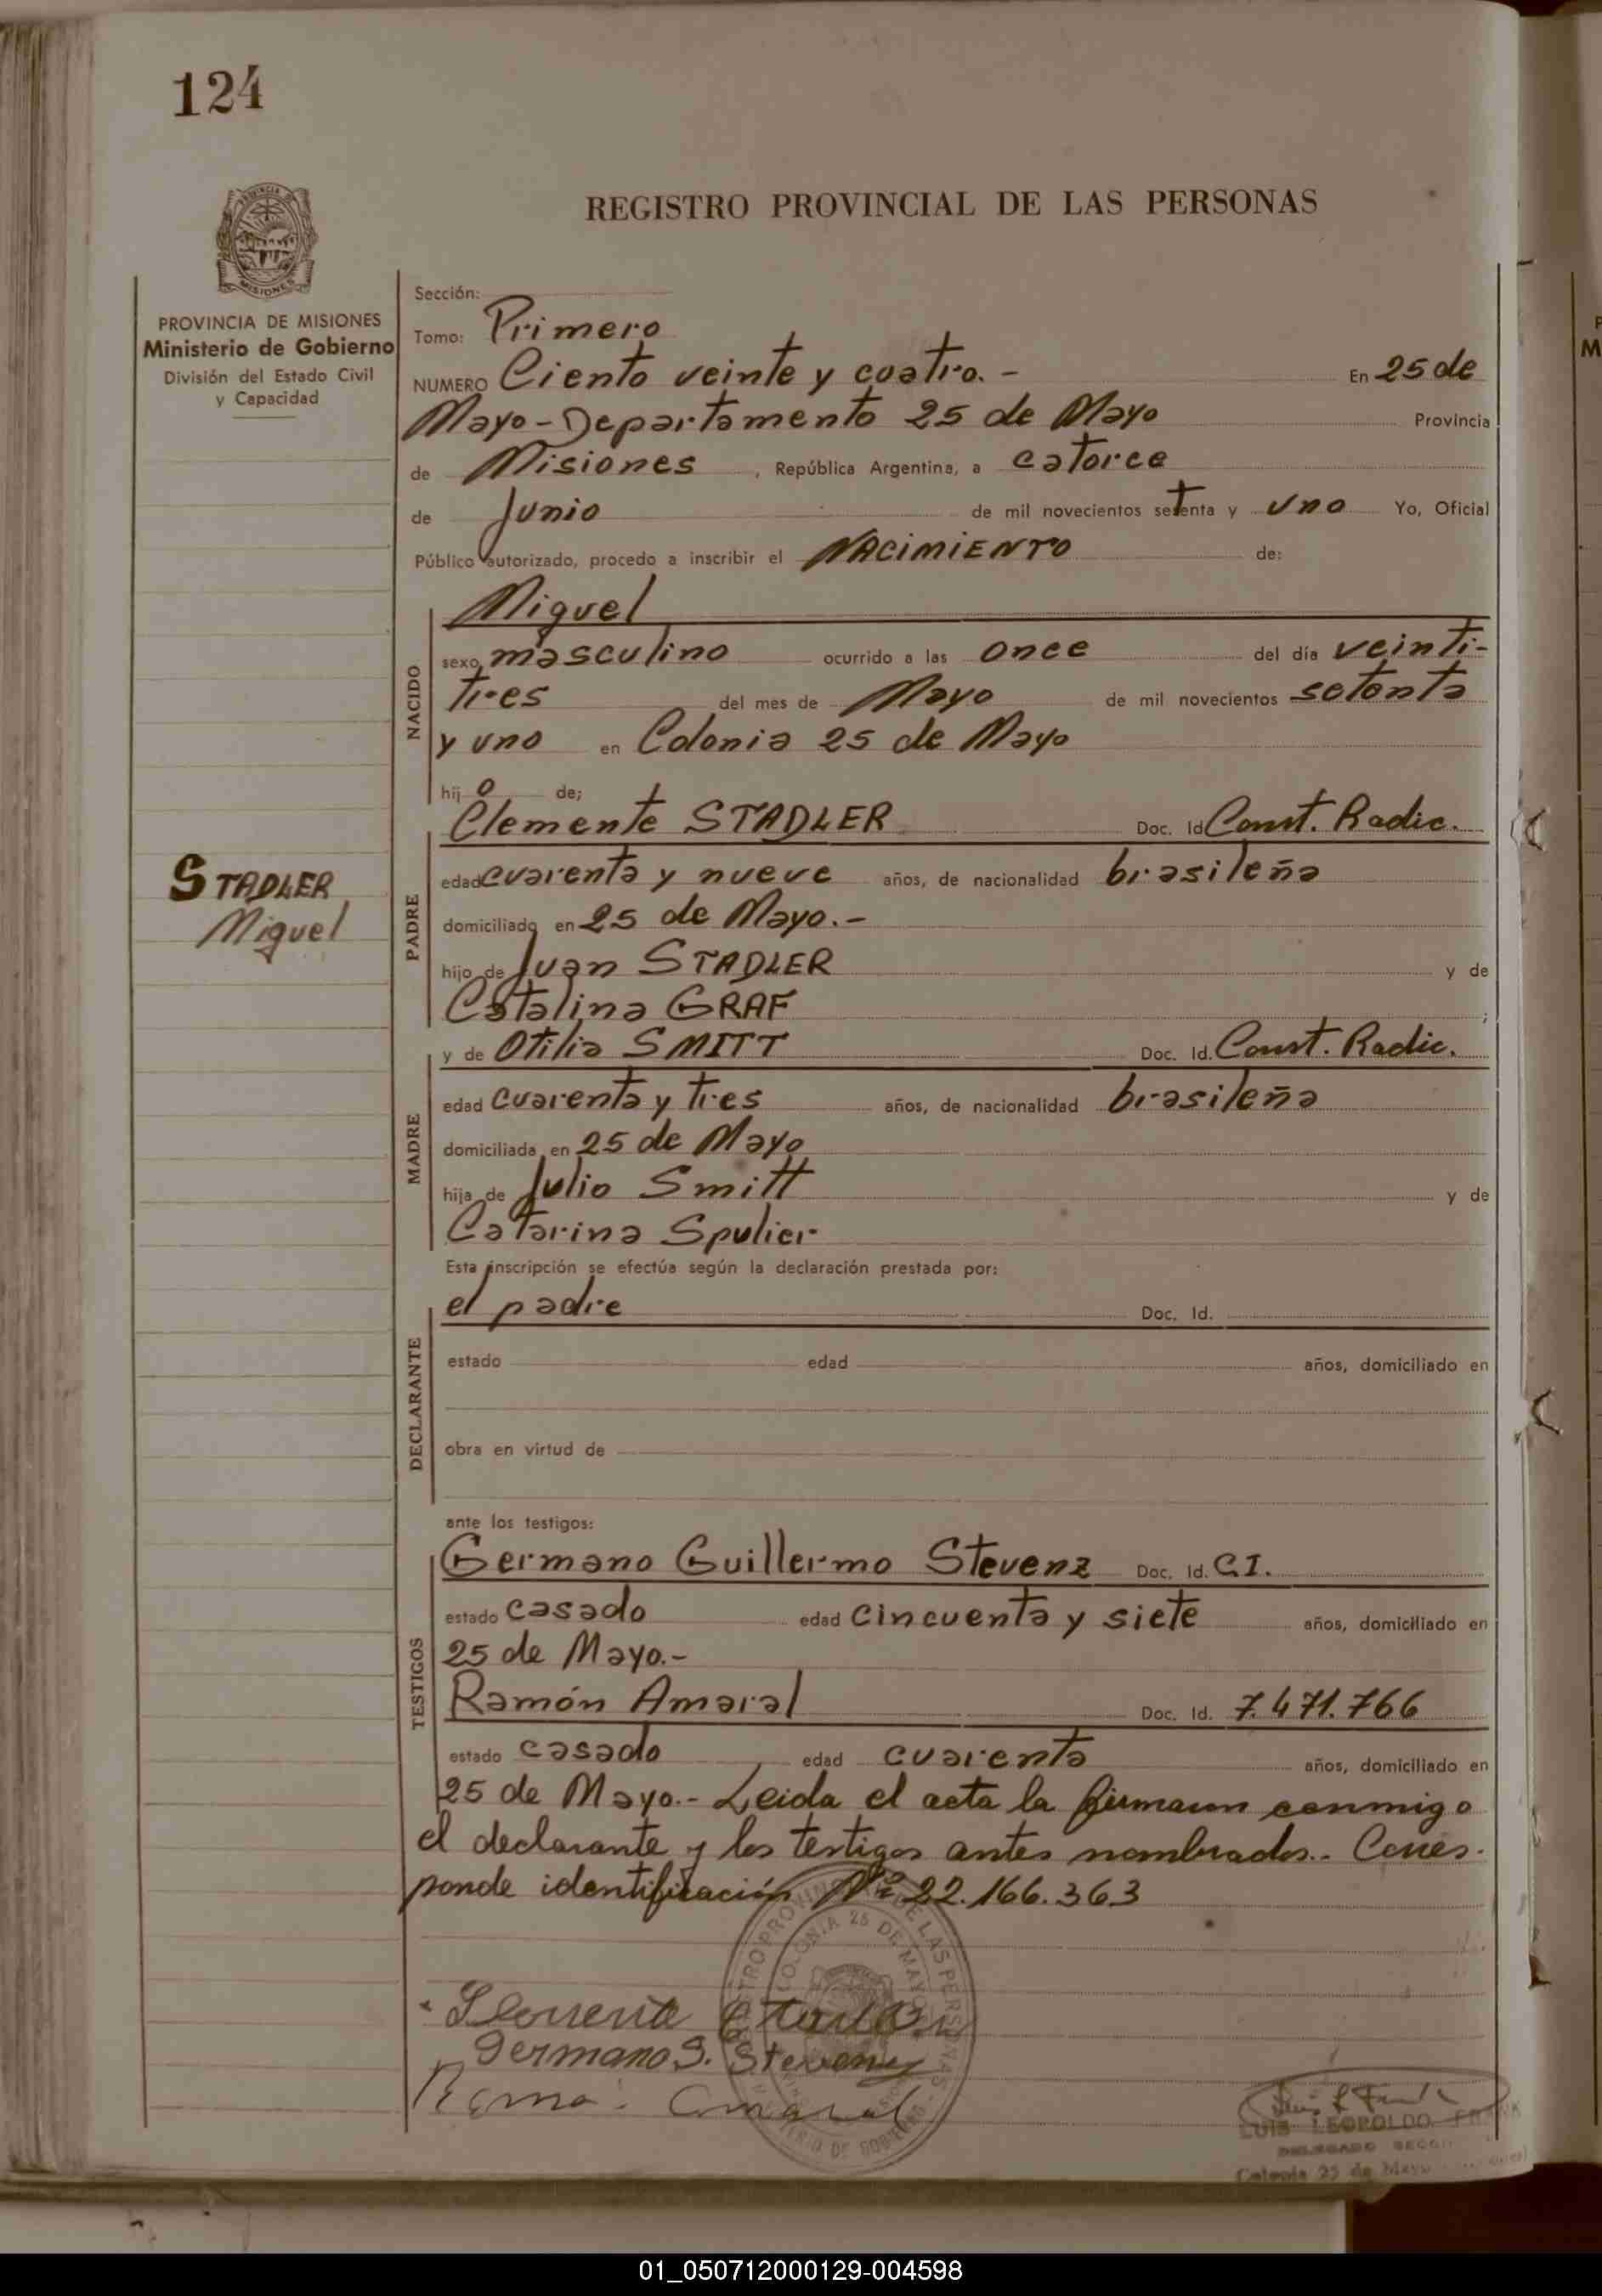 124
REGISTRO PROVINCIAL DE LAS PERSONAS
PROVINCIA DE MISIONES
MISIONES
PROVINCIA DE MISIONES
Ministerio de Gobierno
División del Estado Civil
y Capacidad
Sección:
Tomo: Primero
NUMERO Ciento veinte y cuatro.- En 25 de
Mayo-Departamento 25 de Mayo Provincia
de Misiones, República Argentina, a catorce
de Junio de mil novecientos setenta y uno Yo, Oficial
Público autorizado, procedo a inscribir el NACIMIENTO de:
NACIDO
Miguel
sexo masculino ocurrido a las once del día veinti-
tres del mes de Mayo de mil novecientos setenta
y uno en Colonia 25 de Mayo
hij o de;
STADLER
Miguel
PADRE
Clemente STADLER Doc. Id Const. Radic.
edad cuarenta y nueve años, de nacionalidad brasileña
domiciliado en 25 de Mayo.-
hijo de Juan STADLER y de
Catalina GRAF ;
MADRE
y de Otilia SMITT Doc. Id. Const. Radic.
edad cuarenta y tres años, de nacionalidad brasileña
domiciliada en 25 de Mayo
hija de Julio Smitt y de
Catarina Spulier
Esta inscripción se efectúa según la declaración prestada por:
DECLARANTE
el padre Doc. Id.
estado edad años, domiciliado en
obra en virtud de
ante los testigos:
TESTIGOS
Germano Guillermo Stevenz Doc. Id. C.I.
estado casado edad cincuenta y siete años, domiciliado en
25 de Mayo.-
Ramón Amaral Doc. Id. 7.471.766
estado casado edad cuarenta años, domiciliado en
25 de Mayo.- Leida el acta la firmaron conmigo
el declarante y los testigos antes nombrados.- Corres-
ponde identificación Nº 22.166.363
REGISTRO PROVINCIAL DE LAS PERSONAS
COLONIA 25 DE MAYO
MINISTERIO DE GOBIERNO
Germano G. Stevenz
Amaral
LUIS LEOPOLDO FRANK
DELEGADO
Colonia 25 de Mayo
01_050712000129-004598